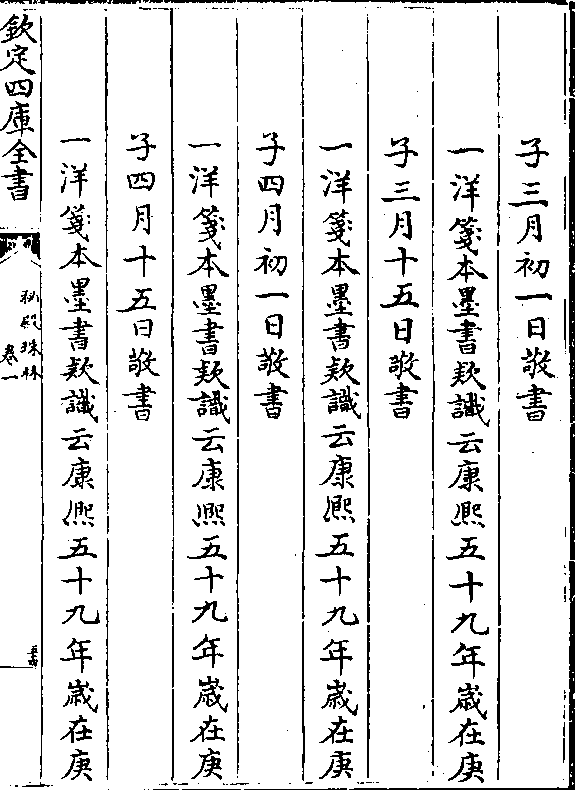 子三月初一日敬書
一洋箋本墨書款識云康熙五十九年歳在庚
子三月十五日敬書
一洋箋本墨書款識云康熙五十九年歳在庚
子四月初一日敬書
一洋箋本墨書款識云康熙五十九年歳在庚
子四月十五日敬書
一洋箋本墨書款識云康熙五十九年歳在庚
欽定四庫全書
秘殿珠林
卷一